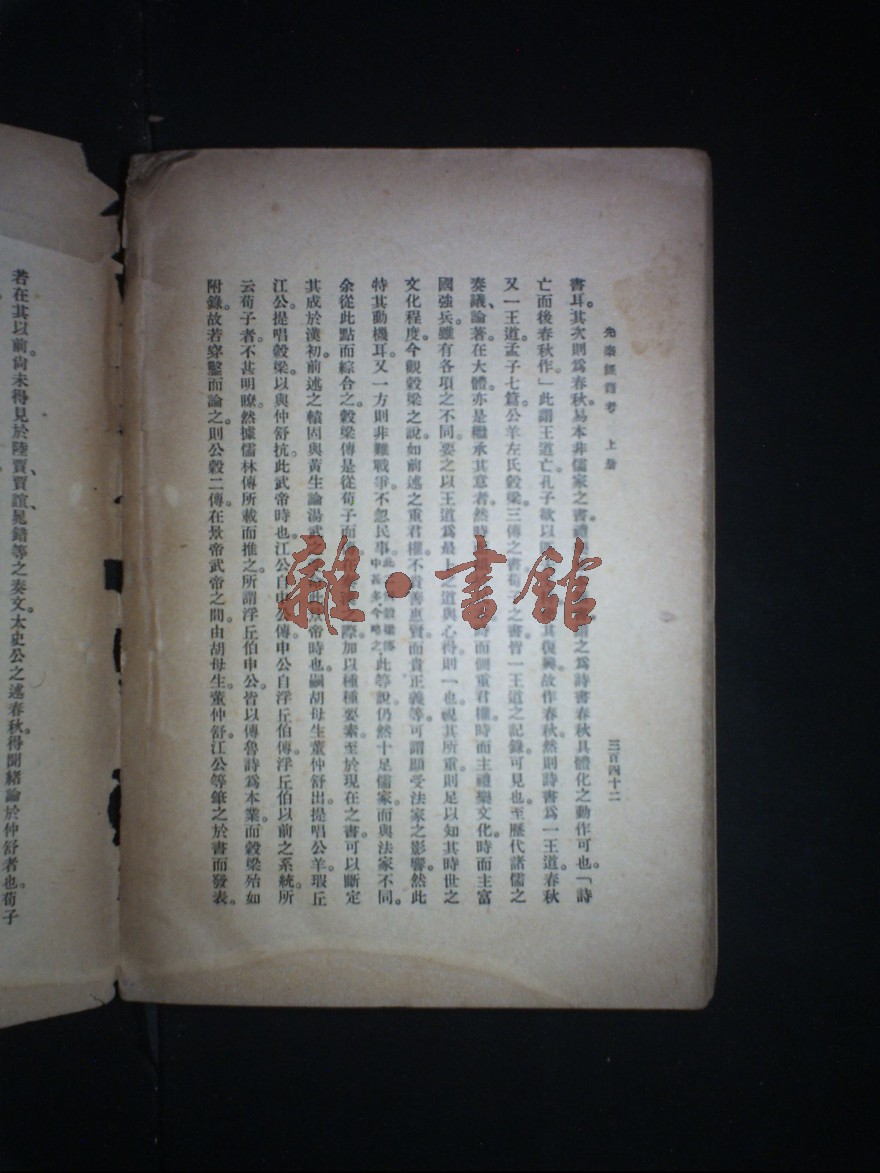 先秦經籍考 上册
三百四十二
書耳。其次則爲春秋易本非儒家之書。之爲詩書春秋具體化之動作可也。「詩
亡而後春秋作」此謂王道亡孔子欲以其復興故作春秋然則詩書爲一王道。春秋
又一王道孟子七篇公羊左氏穀梁三傳之書荀子之書皆一王道之記錄可見也。至歷代諸儒之
奏、議論著在大體。亦是繼承其意者。然時而側重君權。時而主禮樂文化時而主富
國強兵。雖有各項之不同。要之以王道爲最之道與心得則一也。視其所重則足以知其時世之
文化程度。今觀穀梁之說如前述之重君權。不貴善惠賢而貴正義等可謂顯受法家之影響然此
特其動機耳。又一方則非難戰爭。不忍民事。中甚多今略之。此等說仍然十足儒家而與法家不同。
余從此點而綜合之。穀梁傳是從荀子而際。加以種種要素至於現在之書。可以斷定
其成於漢初。前述之轅固與黃生論湯武之景帝時也。嗣胡母生董仲舒出提唱公羊瑕丘
江公提唱穀梁以與仲舒抗。此武帝時也。江公自申公傳申公自浮丘伯傳浮丘伯以前之系統。所
云荀子者。不甚明瞭。然據儒林傳所載而推之。所謂浮丘伯申公皆以傳魯詩爲本業。而穀梁殆如
附錄。故若穿鑿而論之。則公穀二傳在景帝武帝之間。由胡母生董仲舒。江公等筆之於書而發表。
若在其以前。尚未得見於陸賈、賈誼、晁錯等之奏文。太史公之述春秋。得聞緒論於仲舒者也。荀子
雜·書館